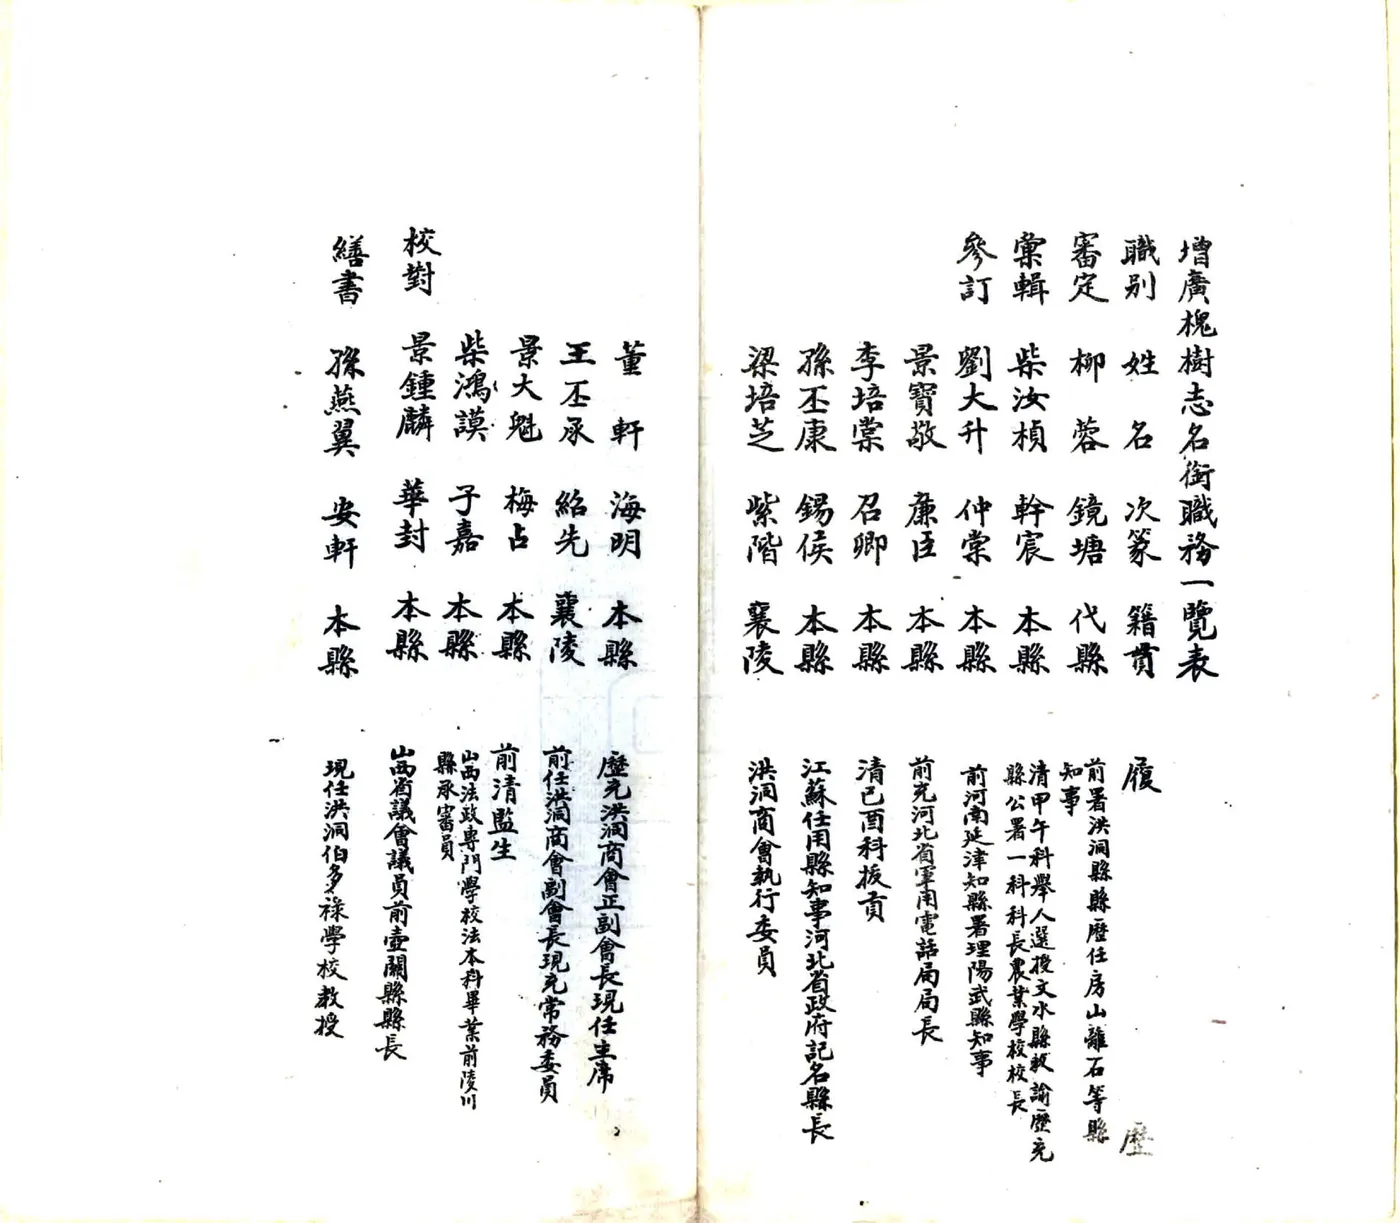 增廣槐樹志名銜職務一覽表
職別 姓名 次篆 籍貫 履歷
審定 柳蓉 鏡塘 代縣 前署洪洞縣縣歷任房山離石等縣
知事
彙輯 柴汝楨 幹宸 本縣 清甲午科舉人選授文水縣教諭歷充
縣公署一科科長農業學校校長
參訂 劉大升 仲棠 本縣 前河南延津知縣署理陽武縣知事
景寶敬 廉臣 本縣 前充河北省軍用電話局局長
李培棠 召卿 本縣 清己酉科拔貢
孫丕康 錫侯 本縣 江蘇任用縣知事河北省政府記名縣長
梁培芝 紫階 襄陵 洪洞商會執行委員
董軒 海明 本縣 歷充洪洞商會正副會長現任主席
王丕承 紹先 襄陵 前任洪洞商會副會長現充常務委員
景大魁 梅占 本縣 前清監生
柴鴻謨 子嘉 本縣 山西法政專門學校法本科畢業前陵川
縣承審員
校對 景鍾麟 華封 本縣 山西省議會議員前壺關縣縣長
繕書 孫燕翼 安軒 本縣 現任洪洞伯多祿學校教授